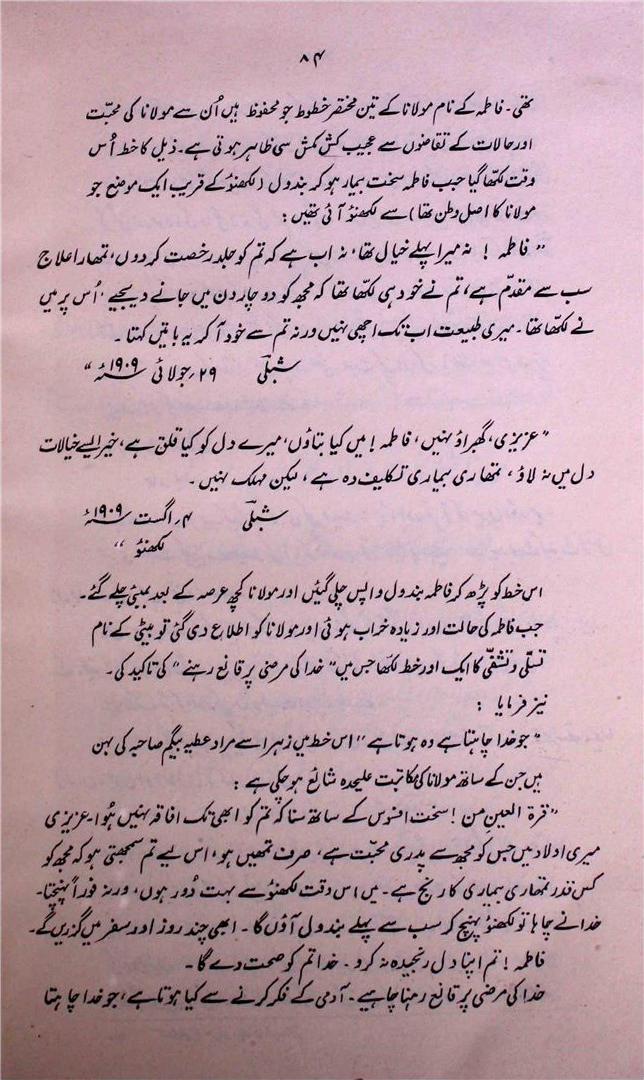 ۸۴
تھی۔ فاطمہ کے نام مولانا کے تین مختصر خطوط جو محفوظ ہیں اُن سے مولانا کی محبّت
اور حالات کے تقاضوں سے عجیب کش مکش سی ظاہر ہوتی ہے۔ ذیل کا خط اُس
وقت لکھا گیا جب فاطمہ سخت بیمار ہو کر بندول (لکھنؤ کے قریب ایک موضع جو
مولانا کا اصل وطن تھا) سے لکھنؤ آئی تھیں:
” فاطمہ! نہ میرا پہلے خیال تھا، نہ اب ہے کہ تم کو جلد رخصت کر دوں، تمھارا علاج
سب سے مقدّم ہے، تم نے خود ہی لکھا تھا کہ مجھ کو دو چار دن میں جانے دیجیے، اُس پر میں
نے لکھا تھا۔ میری طبیعت اب تک اچھی نہیں ورنہ تم سے خود آ کر یہ باتیں کہتا۔
شبلیؔ ۲۹؍ جولائی ۱۹۰۹ء “
” عزیزی، گھبراؤ نہیں، فاطمہ! میں کیا بتاؤں، میرے دل کو کیا قلق ہے، خیر ایسے خیالات
دل میں نہ لاؤ، تمھاری بیماری تکلیف دہ ہے، لیکن مہلک نہیں۔
شبلیؔ ۴؍ اگست ۱۹۰۹ء
لکھنؤ “
اس خط کو پڑھ کر فاطمہ بندول واپس چلی گئیں اور مولانا کچھ عرصہ کے بعد بمبئی چلے گئے۔
جب فاطمہ کی حالت اور زیادہ خراب ہوئی اور مولانا کو اطلاع دی گئی تو بیٹی کے نام
تسلّی و تشفّی کا ایک اور خط لکھا جس میں ” خدا کی مرضی پر قانع رہنے “ کی تاکید کی۔
نیز فرمایا :
” جو خدا چاہتا ہے وہ ہوتا ہے “ اس خط میں زہرا سے مراد عطیہ بیگم صاحبہ کی بہن
ہیں جن کے ساتھ مولانا کی مکاتبت علیحدہ شائع ہو چکی ہے :
” قرۃ العینِ من! سخت افسوس کے ساتھ سنا کہ تم کو ابھی تک افاقہ نہیں ہُوا۔ عزیزی
میری اولاد میں جس کو مجھ سے پدری محبّت ہے، صرف تمھیں ہو، اس لیے تم سمجھتی ہو کہ مجھ کو
کس قدر تمھاری بیماری کا رنج ہے۔ میں اس وقت لکھنؤ سے بہت دُور ہوں، ورنہ فوراً پہنچتا۔
خدا نے چاہا تو لکھنؤ پہنچ کر سب سے پہلے بندول آؤں گا۔ ابھی چند روز اور سفر میں گزریں گے۔
فاطمہ! تم اپنا دل رنجیدہ نہ کرو۔ خدا تم کو صحت دے گا۔
خدا کی مرضی پر قانع رہنا چاہیے۔ آدمی کے فکر کرنے سے کیا ہوتا ہے، جو خدا چاہتا